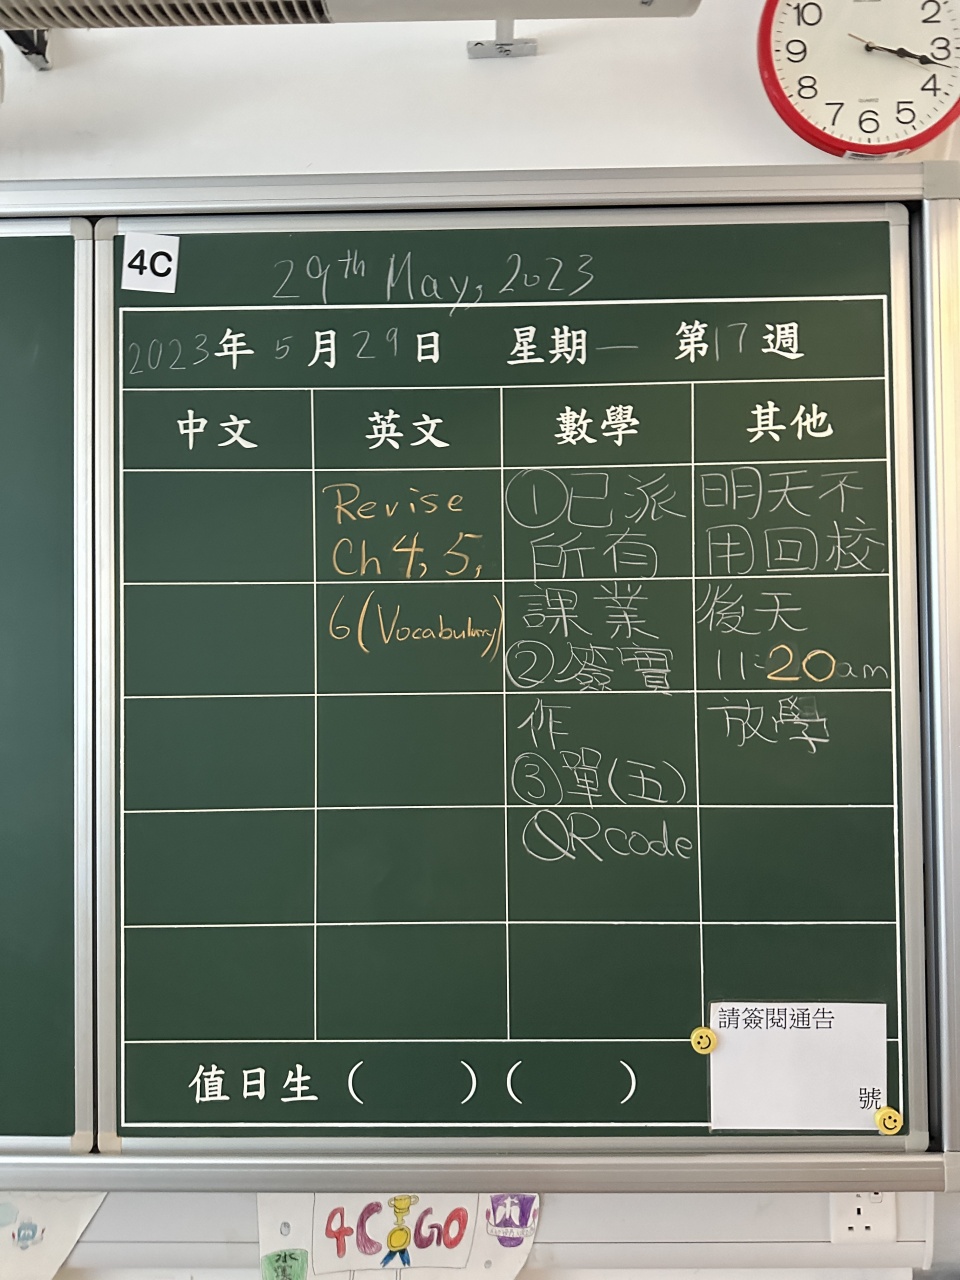 10
9
8
7
6
5
4
3
2
QUARTZ
4C
29th May, 2023
2023年 5 月 29 日 星期一 第17週
中文
英文
數學
其他
Revise
Ch 4, 5,
6 (Vocabulary)
①已派
所有
課業
②簽實
作
③單(五)
QR code
明天不
用回校
後天
11:20am
放學
請簽閱通告
號
值日生 ( ) ( )
4C GO